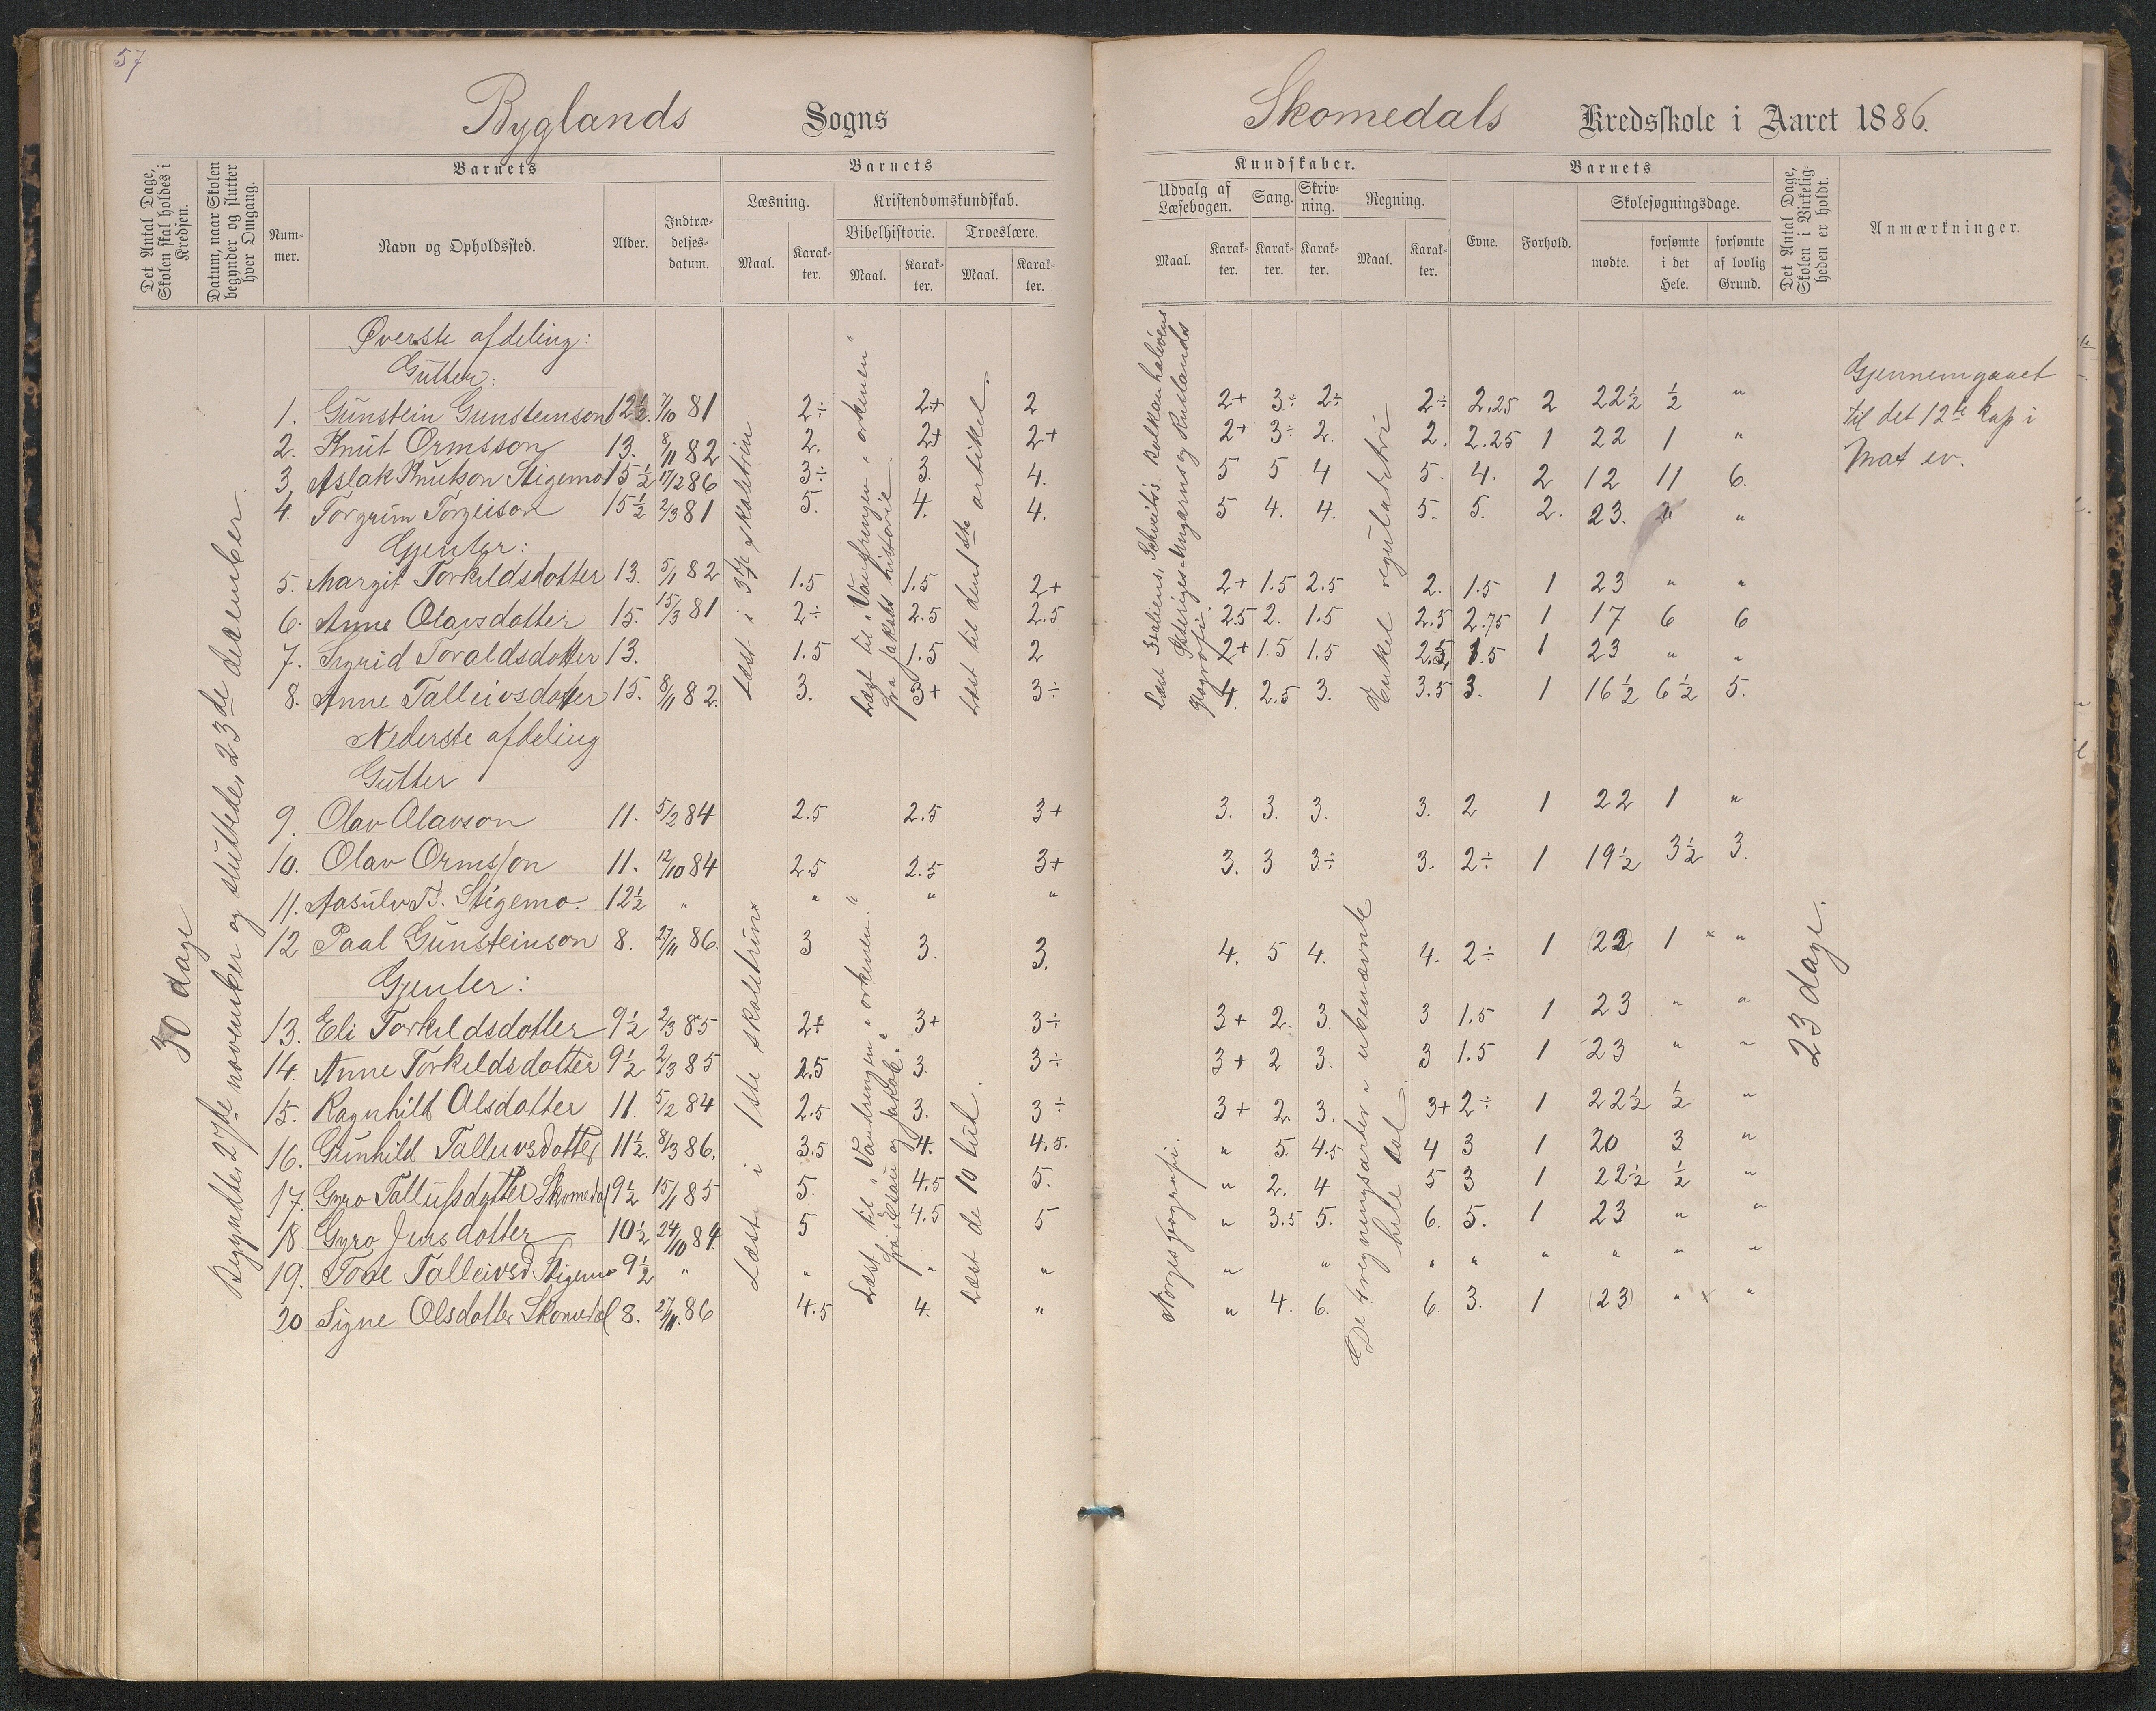 57
Byglands Sogns
Det Antal Dage, Skolen skal holdes i Kredsen.
Datum, naar Skolen begynder og slutter hver Omgang.
Barnets
Num-mer.
Navn og Opholdssted.
Alder.
Indtræ-delses-datum.
Barnets
Læsning.
Maal.
Karak-ter.
Kristendomskundskab.
Bibelhistorie.
Maal.
Karak-ter.
Troeslære.
Maal.
Karak-ter.
30 dage
Begyndte 27de november og sluttede, 23de december.
Øverste afdeling:
Gutter:
1. Gunstein Gunsteinson 12½. 7/10 81 2÷ 2+ 2
2. Knut Ormsson 13. 8/11 82 2. 2+ 2+
3 Aslak Knutson Stigemo 15½ 17/2 86 3÷ 3. 4.
4. Torgrim Torgeison 15½ 2/3 81 5. 4. 4.
Gjenter:
5. Margit Torkildsdotter 13. 5/1 82 1.5 1.5 2+
6. Anne Olavsdotter 15. 15/3 81 2÷ 2.5 2.5
7. Sigrid Toraldsdotter 13. 1.5 1.5 2
8. Anne Talleivsdotter 15. 8/11 82. 3. 3+ 3÷
Læst i 3dje skoletrin
Læst til "Vandringen i ørkenen" fra Jakobs historie
Læst til den 1ste artikel.
Nederste afdeling
Gutter
9. Olav Olavson 11. 5/2 84 2.5 2.5 3+
10. Olav Ormsson 11. 12/10 84 2.5 2.5 3+
11. Aasulv T. Stigemo. 12½ " " " "
12 Paal Gunsteinson 8. 27/11 86. 3 3. 3.
Gjenter:
13. Eli Torkildsdotter 9½ 2/3 85 2÷ 3+ 3÷
14. Anne Torkildsdotter 9½ 2/3 85 2.5 3. 3÷
15. Ragnhild Olsdotter 11. 5/2 84 2.5 3. 3÷
16. Gunhild Talleivsdotter 11½. 8/3 86. 3.5 4. 4.5.
17. Gyro Tallufsdotter Skomedal 9½ 15/1 85 5. 4.5 5.
18. Gyro Jensdotter 10½ 24/10 84. 5 4.5 5
19. Tone Talleivsd Stigemo 9½ " " " "
20 Signe Olsdotter Skomedal 8. 27/11. 86 4.5 4. "
Læst i 1ste skoletrin
Læst til "Vandringen i ørkenen." fra Esau og Jakob.
Læst de 10 bud.
Skomedals Kredsskole i Aaret 1886.
Kundskaber.
Udvalg af Læsebogen.
Maal.
Karak-ter.
Sang.
Karak-ter.
Skriv-ning.
Karak-ter.
Regning.
Maal.
Karak-ter.
Barnets
Evne.
Forhold.
Skolesøgningsdage.
mødte.
forsømte i det Hele.
forsømte af lovlig Grund.
Det Antal Dage, Skolen i Virkelig-heden er holdt.
Anmærkninger.
Læst Italiens, Schveits's. Balkanhaløens
Østeriges-Ungarns og Ruslands
geografi.
Enkel reguladetri
2+ 3÷ 2÷ 2÷ 2.25 2 22½ ½ "
2+ 3÷ 2. 2. 2.25 1 22 1 "
5 5 4 5. 4. 2 12 11 6.
5 4. 4. 5. 5. 2. 23. " "
2+ 1.5 2.5 2. 1.5 1 23 " "
2.5 2. 1.5 2.5 2.75 1 17 6 6
2+ 1.5 1.5 2.5 1.5 1 23 " "
4. 2.5 3. 3.5 3. 1 16½ 6½ 5.
Gjennemgaaet
til det 12te kap i
Mat ev.
3. 3. 3. 3. 2 1 22 1 "
3. 3 3÷ 3. 2÷ 1 19½ 3½ 3.
4. 5 4. 4. 2÷ 1 (22) 1 × "
3+ 2. 3. 3 1.5 1 23 " "
3+ 2 3. 3 1.5 1 23 " "
3+ 2. 3. 3+ 2÷ 1 22½ ½ "
" 5. 4.5 4 3 1 20 3 "
" 2. 4 5 3 1 22½ ½ "
" 3.5 5. 6. 5. 1 23 " "
" " " " " " " "
" 4. 6. 6. 3. 1 (23) " × "
Norges geografi.
De 4 regningsarter i ubenævnte
hele tal.
23 dage.